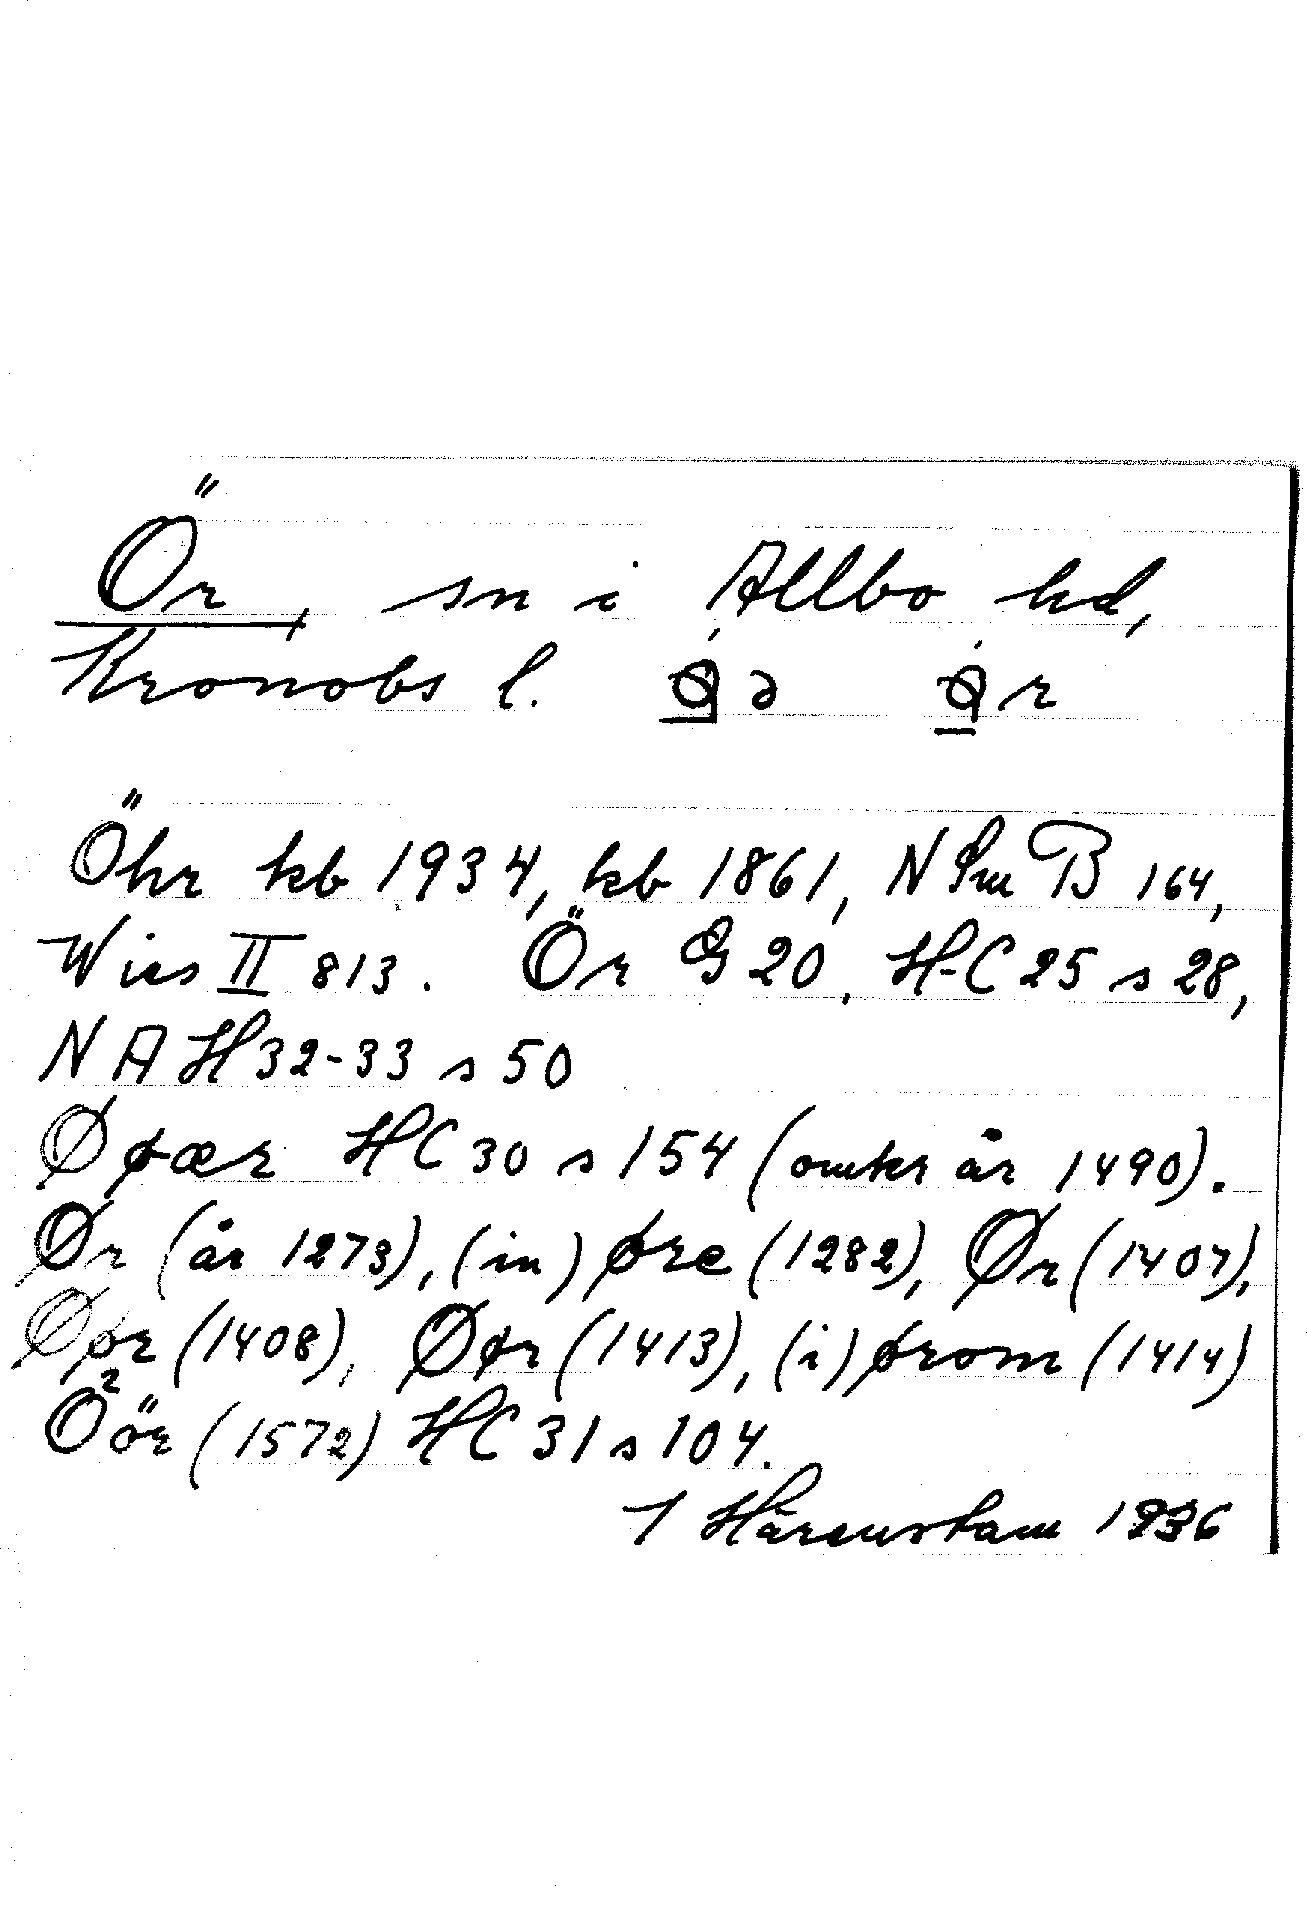 Ör, sn i Allbo hd,
Kronobs l.
Öhr kb 1934, kb 1861, N Sm B 164,
Wies II 813. Ör G 20, H-C 25 s 28,
N A H 32-33 s 50
Øøær HC 30 s 154 (omkr år 1490).
Ør (år 1273), (in) øre (1282), Ør (1407),
Øør (1408), Øør (1413), (i) ørom (1414)
Öör (1572) HC 31 s 104.
I Hårenstam 1936